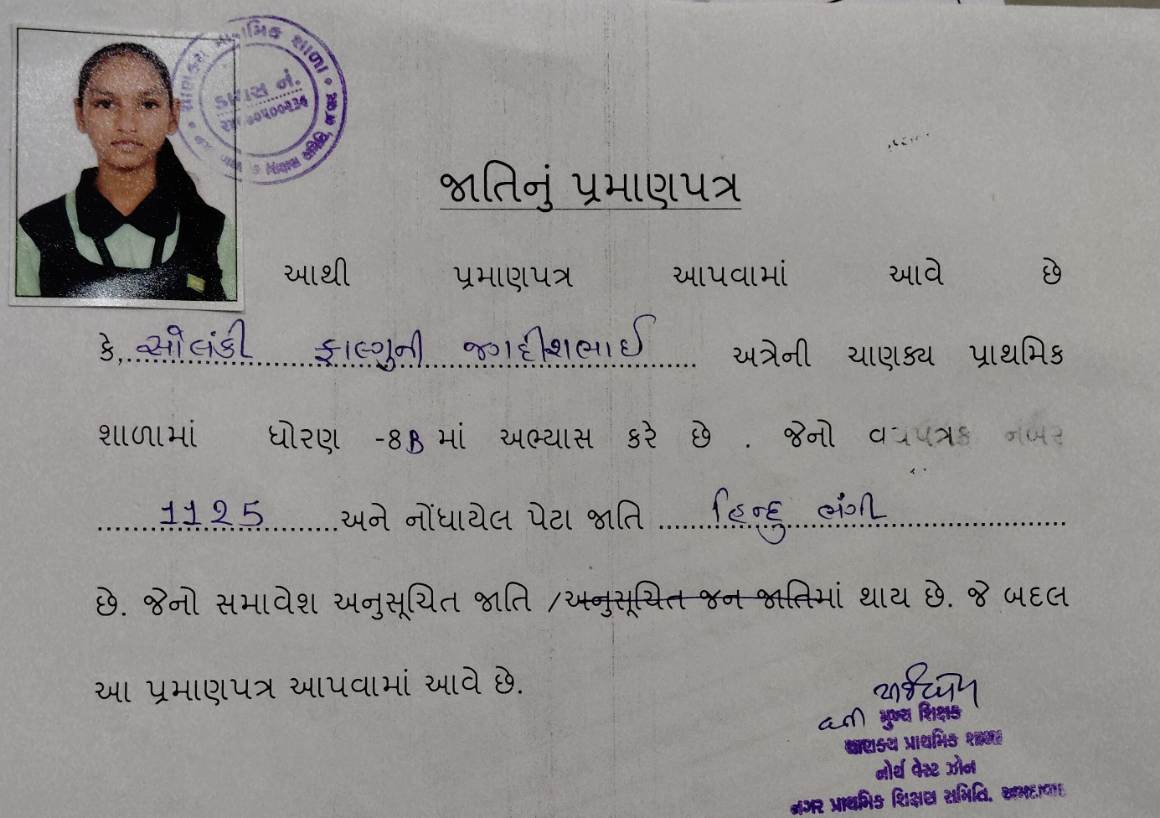 ચાણક્ય પ્રાથમિક શાળા
ડાયસ નં.
જાતિનું પ્રમાણપત્ર
આથી પ્રમાણપત્ર આપવામાં આવે છે
કે, સોલંકી ફાલ્ગુની જગદીશભાઈ અત્રેની ચાણક્ય પ્રાથમિક
શાળામાં ધોરણ -8B માં અભ્યાસ કરે છે . જેનો વયપત્રક નંબર
1125 અને નોંધાયેલ પેટા જાતિ હિન્દુ ભંગી
છે. જેનો સમાવેશ અનુસૂચિત જાતિ /અનુસૂચિત જન જાતિમાં થાય છે. જે બદલ
આ પ્રમાણપત્ર આપવામાં આવે છે.
વતી મુખ્ય શિક્ષક
ચાણક્ય પ્રાથમિક શાળા
નોર્થ વેસ્ટ ઝોન
નગર પ્રાથમિક શિક્ષણ સમિતિ, અમદાવાદ